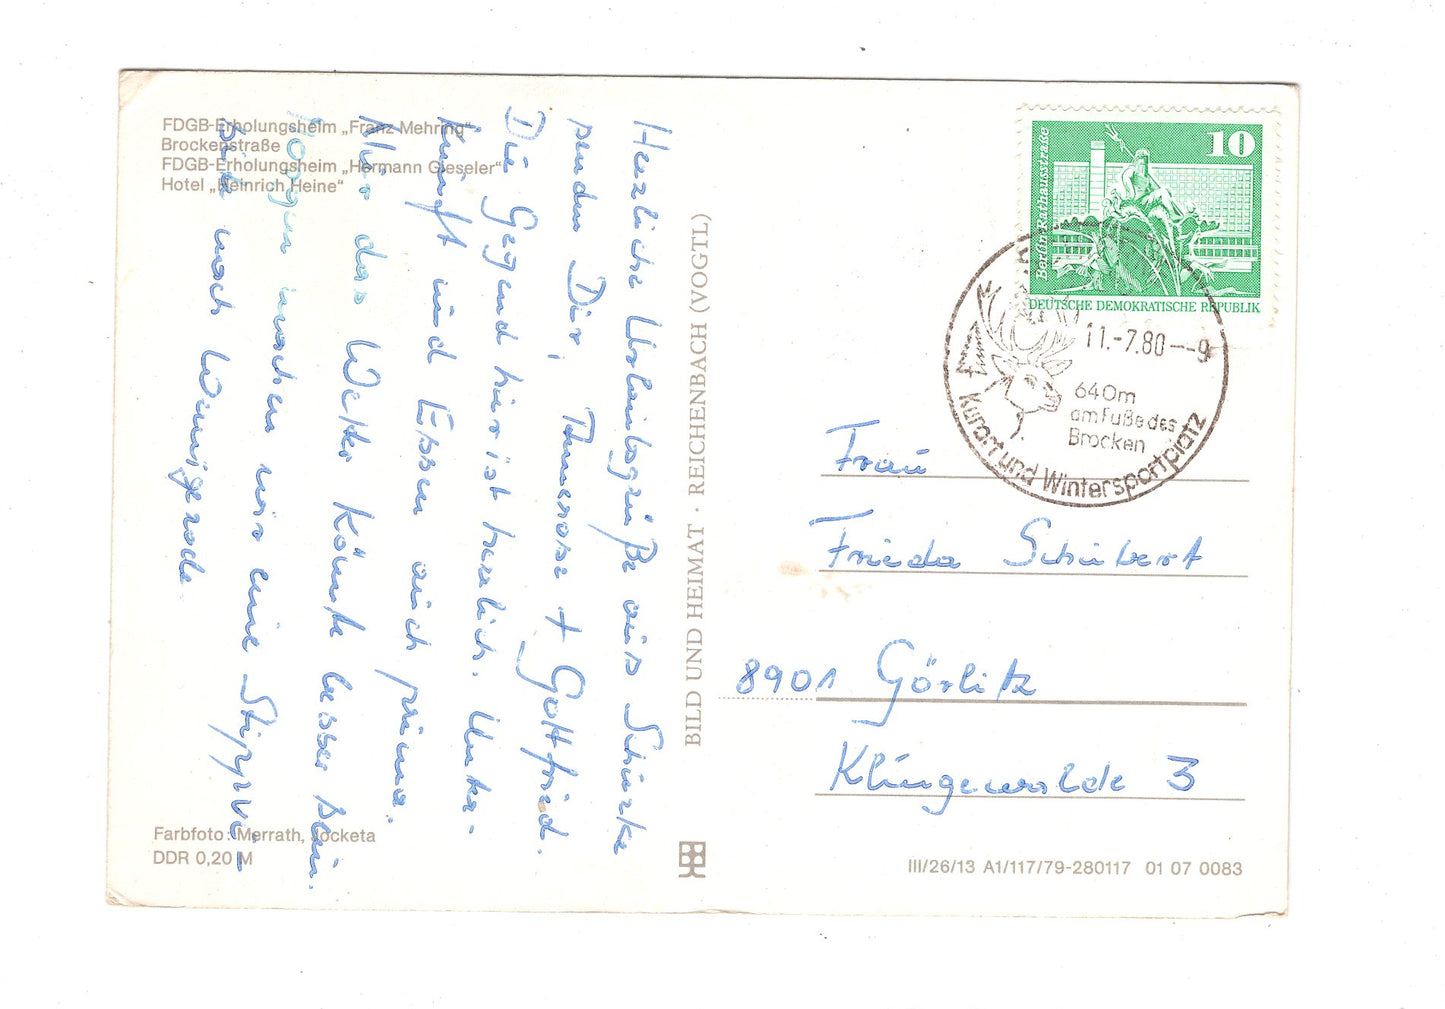 FDGB-Erholungsheim „Franz Mehring“
Brockenstraße
FDGB-Erholungsheim „Hermann Gieseler“
Hotel „Heinrich Heine“
Herzliche Urlaubsgrüße aus Schierke
senden Dir, Annerose + Gottfried.
Die Gegend hier ist herrlich. Unter-
kunft und Essen auch prima.
Nur das Wetter könnte besser sein.
Morgen machen wir eine Stippvi-
site nach Wernigerode
Farbfoto: Merrath, Jocketa
DDR 0,20 M
BILD UND HEIMAT · REICHENBACH (VOGTL)
10
Berlin-Rathausstraße
DEUTSCHE DEMOKRATISCHE REPUBLIK
11.-7.80--9
640m
am Fuße des
Brocken
Kurort und Wintersportplatz
Frau
Frieda Schubert
8901 Görlitz
Klingewalde 3
III/26/13 A1/117/79-280117 01 07 0083